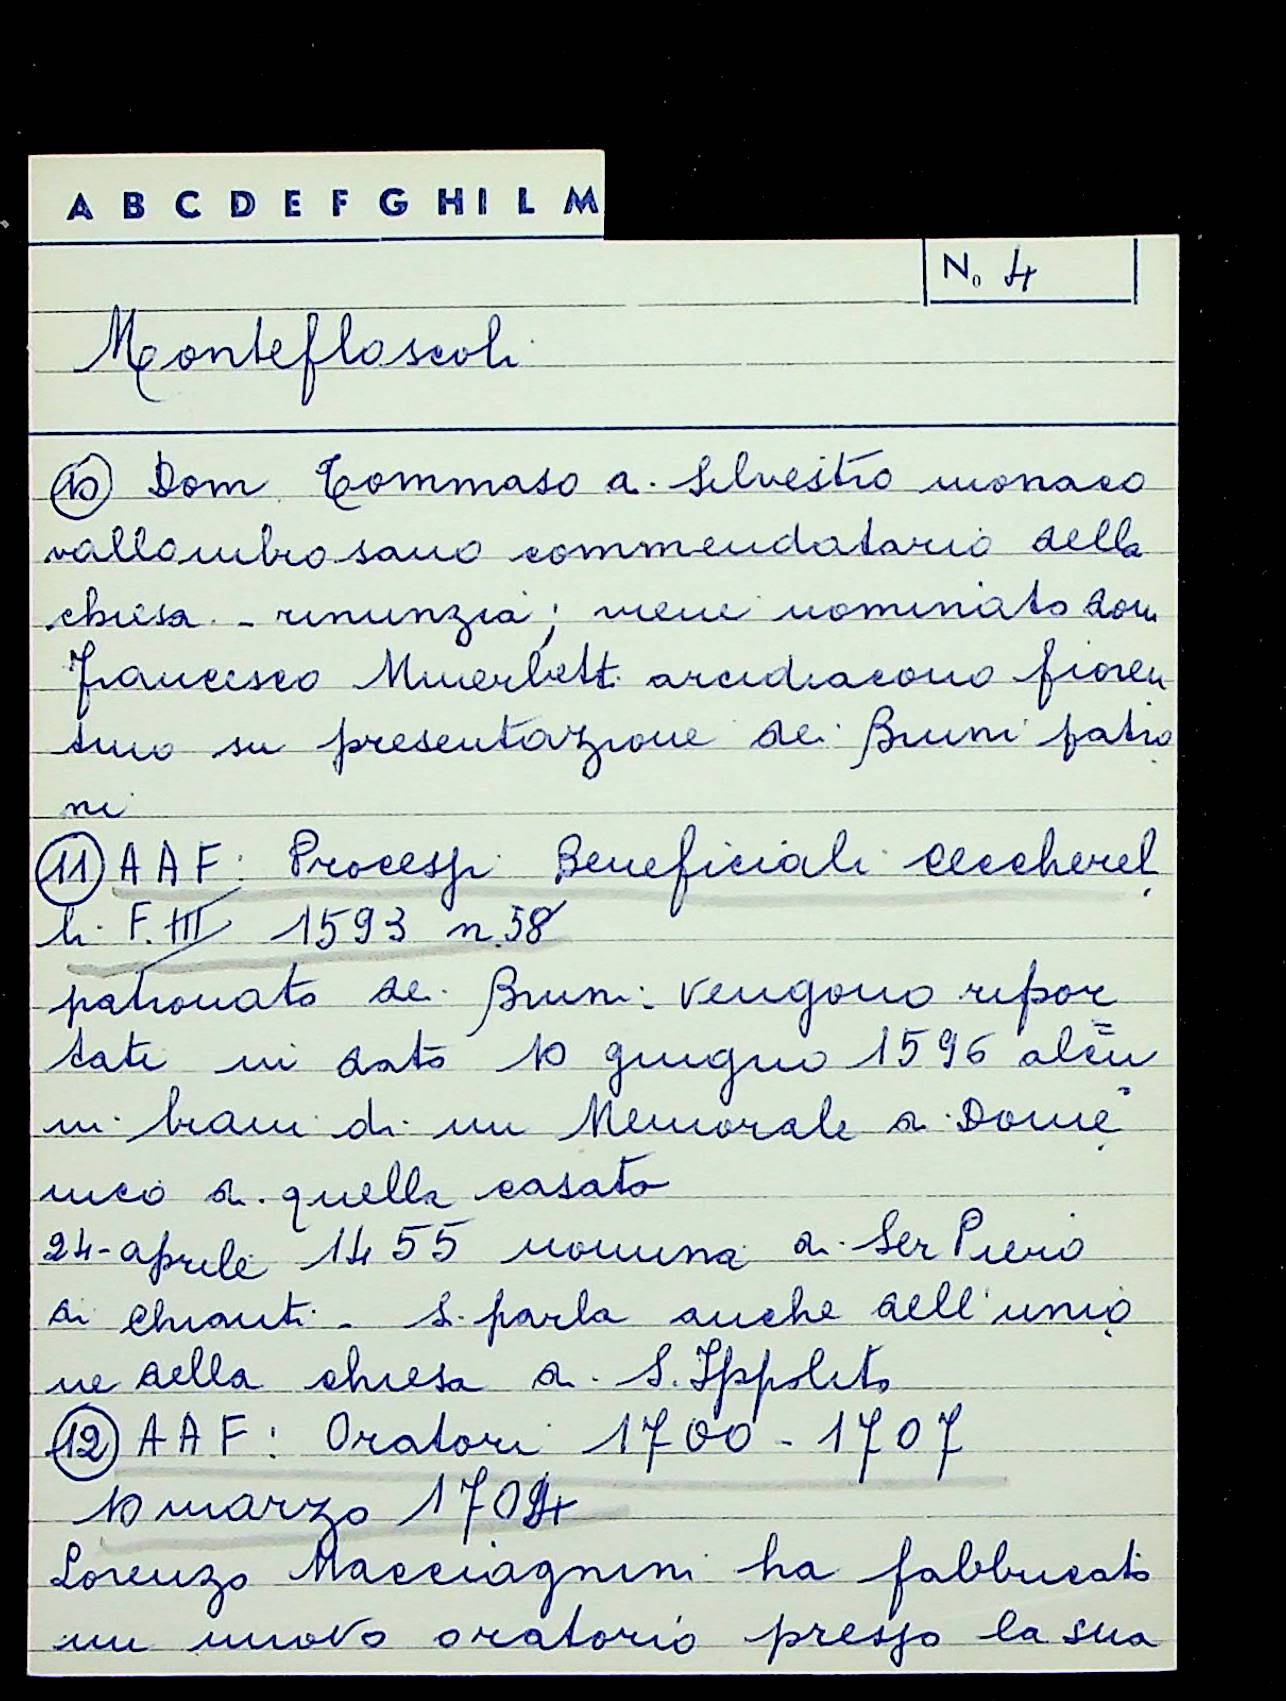 A B C D E F G H I L M
No 4
Montefloscoli
10 Dom Tommaso di Silvestro monaco
vallombrosano commendatario della
chiesa - rinunzia; viene nominato don
Francesco Minerbetti arcidiacono fioren
tino su presentazione dei Bruni patro
ni
11 AAF: Processi Beneficiali Ceccherel
li F. III 1593 n. 58
patronato dei Bruni - vengono ripor
tati in data 10 giugno 1596 alcu=
ni brani di un Memoriale di Dome=
nico di quella casato
24 - aprile 1455 nomina di Ser Piero
di Chianti - Si parla anche dell'unio
ne della chiesa di S. Ippolito
12 AAF: Oratori 1700 - 1707
10 marzo 1704
Lorenzo Macciagnini ha fabbricato
un nuovo oratorio presso la sua